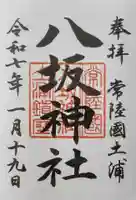 奉拝 常陸國土浦
八坂神社
令和七年一月十九日